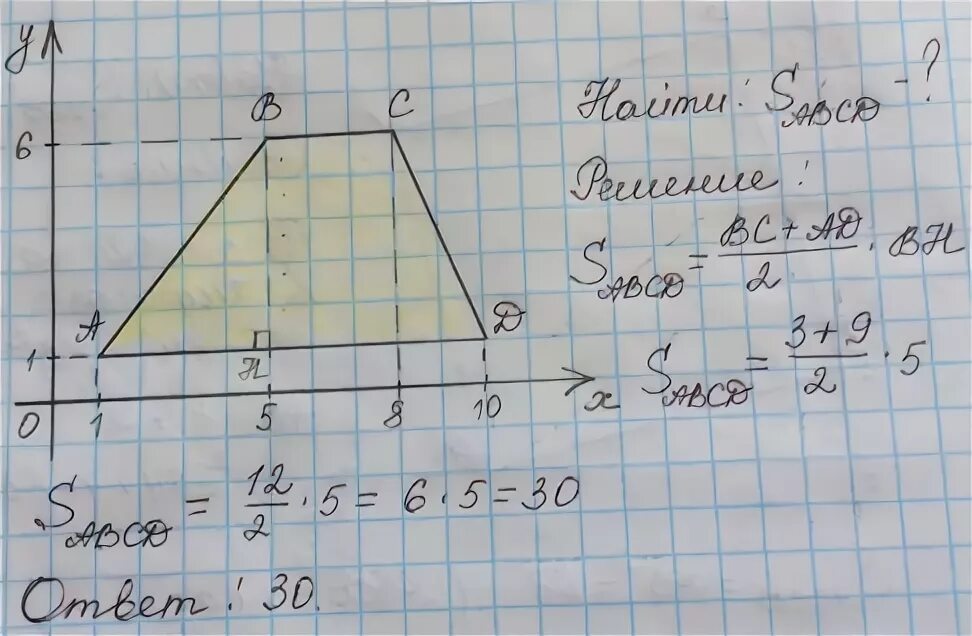 y
B C
6
A D
1 H
0 1 5 8 10 x
Найти: S_ABCD - ?
Решение:
S_ABCD = (BC + AD)/2 · BH
S_ABCD = (3 + 9)/2 · 5
S_ABCD = 12/2 · 5 = 6 · 5 = 30
Ответ: 30.